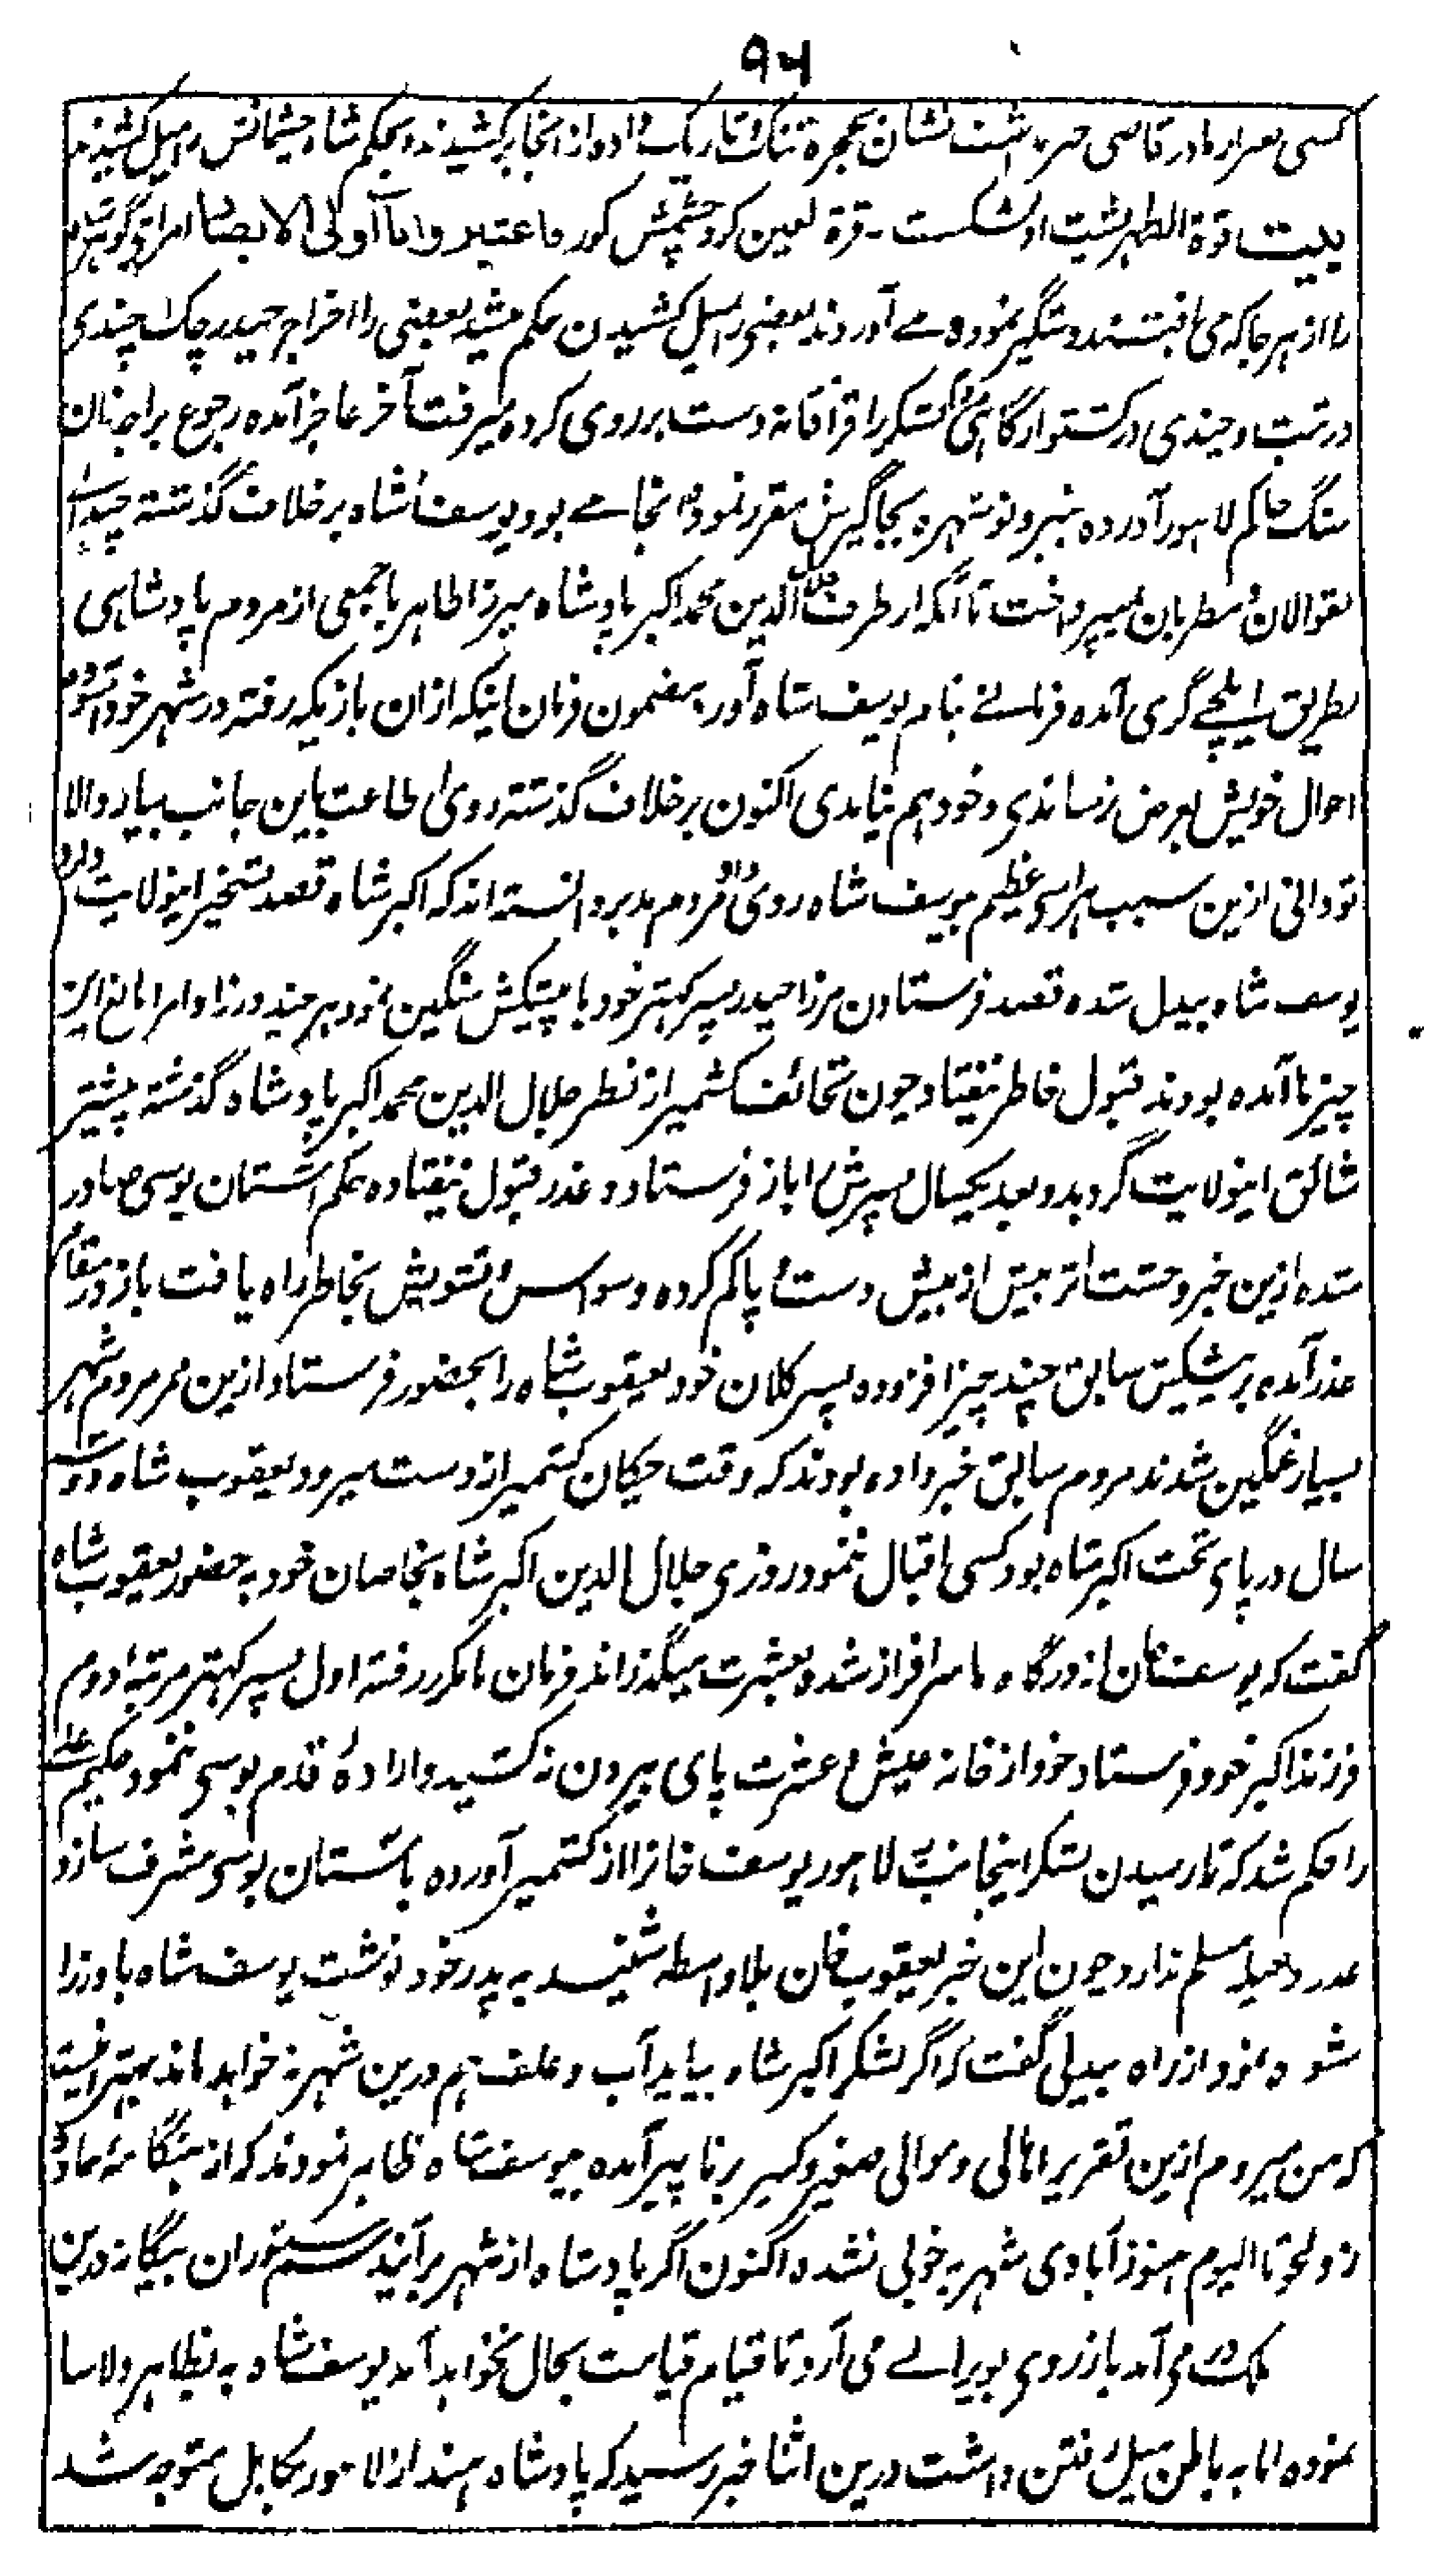 ۹۶
کسی مادر قاضی نشان بحجره تنگ تاریک داد از انجا بر کشیدند و بحکم شاه چشمانش را میل کشیدند
بیت قوة الظهر پشت او شکست - قرة العین کرد چشمش کور فاعتبروا یا اولی الابصار امرای دیگر
را از هر جا که می یافتند دستگیر نموده می آوردند بعضی را میل کشیدن حکم میشد بعضی را اخراج حیدر چک چندی
در تبت و چندی در کشتوار گاهی لشکر را قزاقانه دست بردی کرده میرفت آخر عاجز آمده رجوع براجه مان
سنگ حاکم لاهور آورده بنبر و نوشهره بجاگیرش مقرر نمود انجا می بود یوسف شاه بر خلاف گذشته
بقوالان و مطربان میپرداخت تا آنکه از طرف جلال الدین محمد اکبر بادشاه میرزا طاهر با جمعی از مردم پادشاهی
بطریق ایلچی گری آمده فرمانی بنام یوسف شاه آورد مضمون فرمان اینکه ازان باز یکه رفته در شهر خود
احوال خویش بعرض نرساندی و خود هم نیامدی اکنون بر خلاف گذشته روی اطاعت باین جانب بیار والا
تو دانی ازین سبب هراسی عظیم بیوسف شاه روی داد مردم مدبر دانسته اند که اکبر شاه قصد تسخیر اینولایت دارد
یوسف شاه بیدل شده قصد فرستادن مرزا حیدر پسر کهتر خود با پیشکش سنگین نمود هر چند وزرا و امرا مانع این
چیزها آمده بودند قبول خاطر نیفتاد چون تحائف کشمیر از نظر جلال الدین محمد اکبر پادشاه گذشته پیشتر
شائق اینولایت گردید و بعد یکسال پسرش را باز فرستاد و عذر قبول نیفتاده حکم آستان بوسی صادر
شده ازین خبر وحشت اثر بیش از پیش دست و پا گم کرده وسواس و تشویش بخاطر راه یافت باز در مقام
عذر آمده بر پیشکش سابق چند چیز افزوده پسر کلان خود یعقوب شاه را بحضور فرستاد ازین ممر مردم شهر
بسیار غمگین شدند مردم سابق خبر داده بودند که وقت چکان کشمیر از دست میرود یعقوب شاه دو
سال در پای تخت اکبر شاه بود کسی اقبال ننمود روزی جلال الدین اکبر شاه بخاصان خود به حضور یعقوب شاه
گفت که یوسف خان از درگاه ما سرافراز شده بعشرت میگذراند فرمان ما مکرر رفته اول پسر کهتر مرتبه دوم
فرزند اکبر خود فرستاد خود از خانه عیش و عشرت پای بیرون نه کشید و اراده قدم بوسی ننمود حکیم علی
را حکم شد که تا رسیدن لشکر اینجانب بلاهور یوسف خانرا از کشمیر آورده باستان بوسی مشرف سازد
عذر و حیله مسلم ندارد چون این خبر یعقوب خان بلاواسطه شنید به پدر خود نوشت یوسف شاه با وزرا
شوره نمود از راه بیدلی گفت که اگر لشکر اکبر شاه بیاید آب و علف هم درین شهر نه خواهد ماند بهتر اینست
که من میروم ازین تقریر اهالی و موالی صغیر و کبیر برنا پیر آمده بیوسف شاه ظاهر نمودند که از هنگامهٔ
زولچو تا الیوم هنوز آبادی شهر به خوبی نشده اکنون اگر پادشاه از شهر برآیند ستوران بیگانه درین
ملک در می آمد باز روی بویرانی می آرد تا قیام قیامت بحال نخواهد آمد یوسف شاه به بظاهر دلاسا
نموده اما به باطن میل رفتن داشت درین اثنا خبر رسید که پادشاه هند از لاهور بکابل متوجه شد